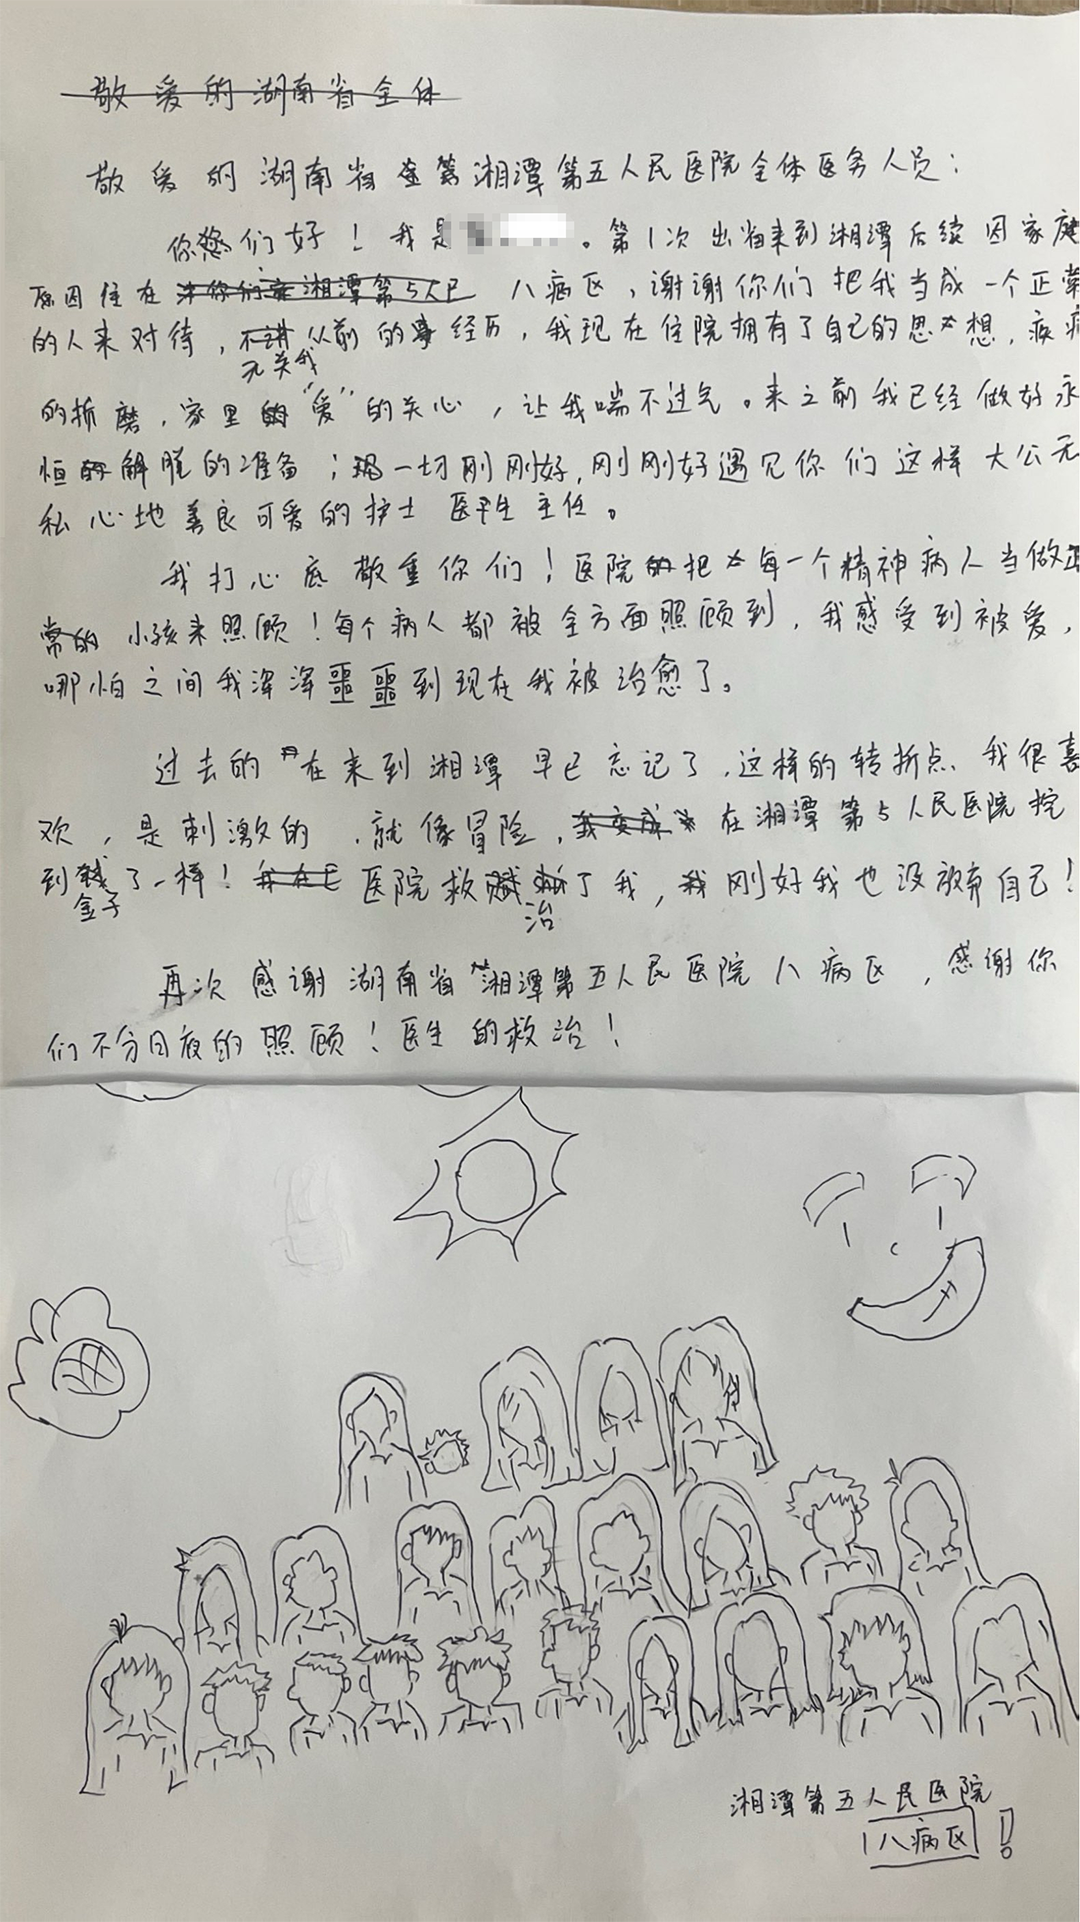 敬爱的湖南省全体
敬爱的湖南省湘潭第五人民医院全体医务人员：
你您们好！我是 。第1次出省来到湘潭后续因家庭
原因住在湘潭第5人民 八病区，谢谢你们把我当成一个正常
的人来对待，不讲从前的事经历，我现在住院拥有了自己的思想，疾病
无关我
的折磨，家里的“爱”的关心，让我喘不过气。来之前我已经做好永
恒的解脱的准备；一切刚刚好，刚刚好遇见你们这样大公无
私心地善良可爱的护士 医生主任。
我打心底敬重你们！医院的把每一个精神病人当做正
常的小孩来照顾！每个病人都被全方面照顾到，我感受到被爱，
哪怕之间我浑浑噩噩到现在我被治愈了。
过去的在来到湘潭早已忘记了，这样的转折点、我很喜
欢，是刺激的，就像冒险，我变成在湘潭第5人民医院挖
到钱了一样！我在已医院救了我，我刚好我也没放弃自己！
金子
治
再次感谢湖南省湘潭第五人民医院八病区，感谢你
们不分日夜的照顾！医生的救治！
湘潭第五人民医院
八病区！